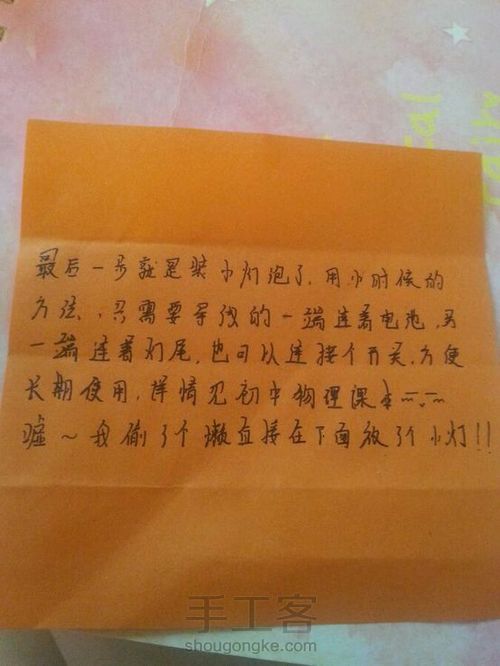 最后一步就是装小灯泡了,用小时候的
方法,只需要导线的一端连着电池,另
一端连着灯尾,也可以连接个开关,方便
长期使用,详情见初中物理课本一.一
嘘~我偷了个懒直接在下面放了个小灯!!
手工客
shougongke.com